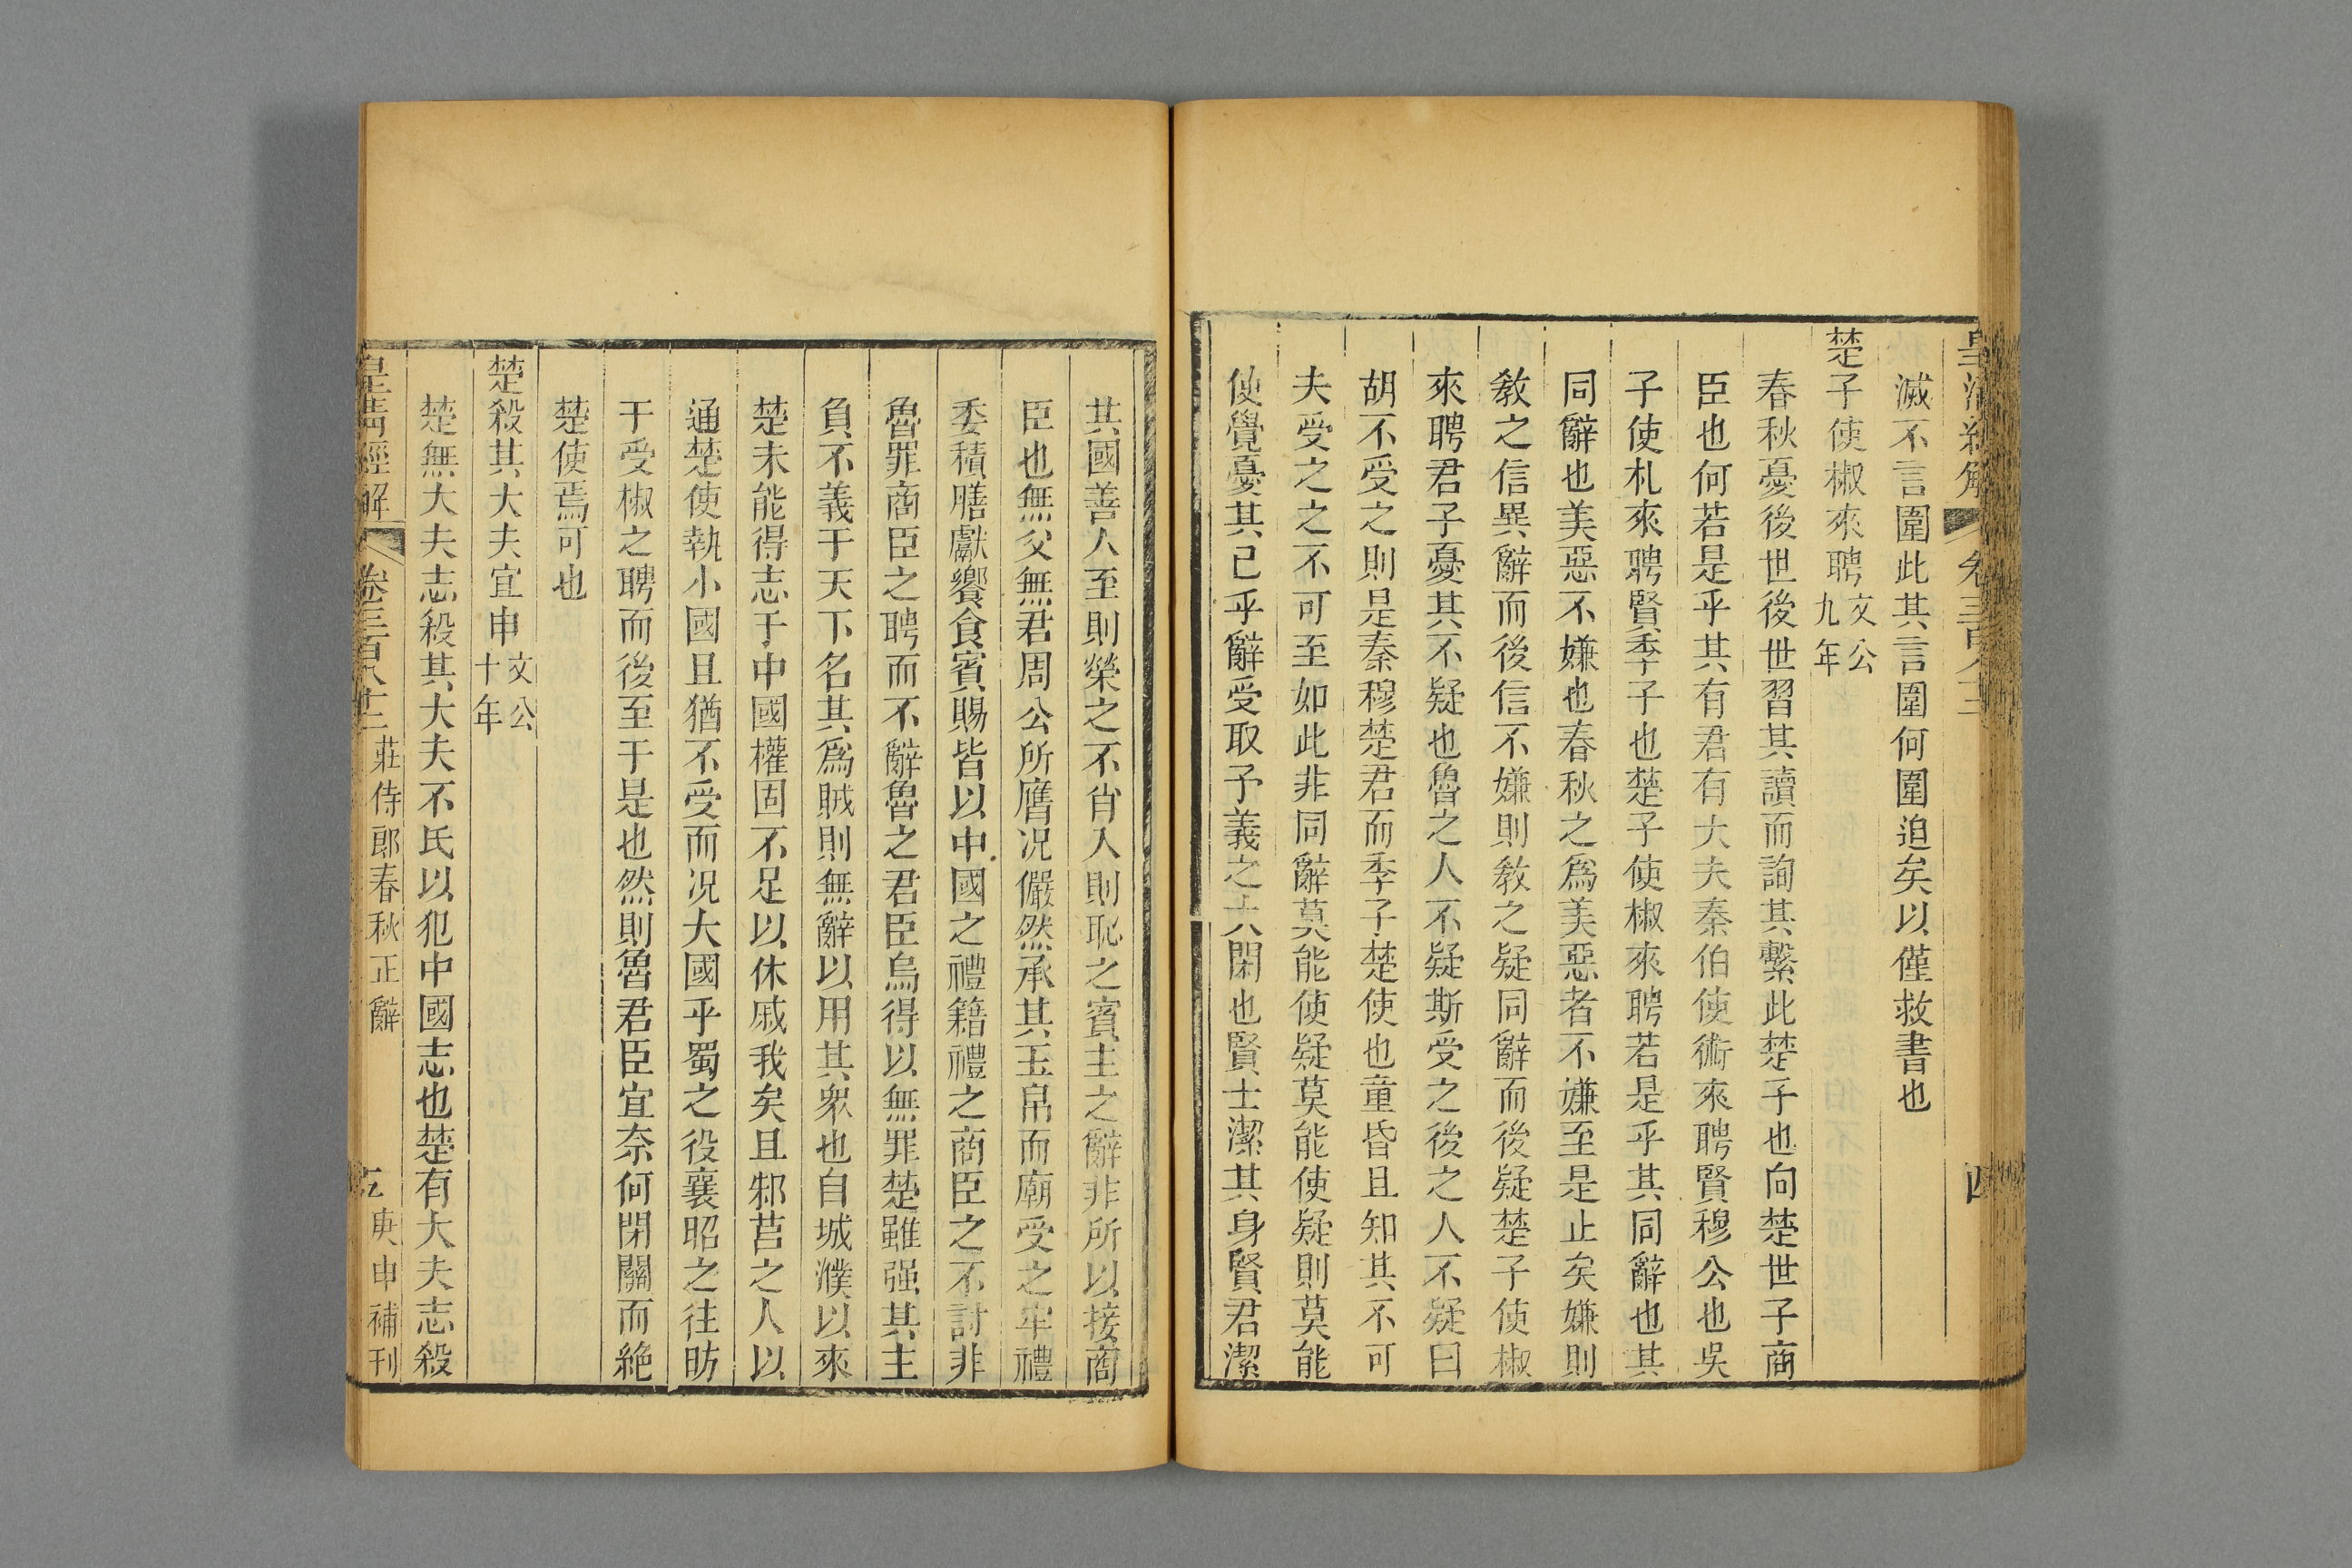 皇清經解 卷三百八十三 四
滅不言圍此其言圍何圍迫矣以僅救書也
楚子使椒來聘文公九年
春秋憂後世後世習其讀而詢其繫此楚子也向楚世子商
臣也何若是乎其有君有大夫秦伯使術來聘賢穆公也吳
子使札來聘賢季子也楚子使椒來聘若是乎其同辭也其
同辭也美惡不嫌也春秋之爲美惡者不嫌至是止矣嫌則
敎之信異辭而後信不嫌則敎之疑同辭而後疑楚子使椒
來聘君子憂其不疑也魯之人不疑斯受之後之人不疑曰
胡不受之則是秦穆楚君而季子楚使也童昏且知其不可
夫受之之不可至如此非同辭莫能使疑莫能使疑則莫能
使覺憂其已乎辭受取予義之大閑也賢士潔其身賢君潔
其國善人至則榮之不肖人則恥之賓主之辭非所以接商
臣也無父無君周公所膺況儼然承其玉帛而廟受之牢禮
委積膳獻饗食賓賜皆以中國之禮籍禮之商臣之不討非
魯罪商臣之聘而不辭魯之君臣烏得以無罪楚雖强其主
負不義于天下名其爲賊則無辭以用其衆也自城濮以來
楚未能得志于中國權固不足以休戚我矣且邾莒之人以
通楚使執小國且猶不受而况大國乎蜀之役襄昭之往昉
于受椒之聘而後至于是也然則魯君臣宜奈何閉關而絕
楚使焉可也
楚殺其大夫宜申文公十年
楚無大夫志殺其大夫不氏以犯中國志也楚有大夫志殺
皇清經解 卷三百八十三 莊侍郎春秋正辭 五 庚申補刊